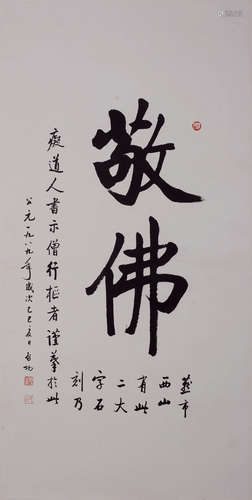 敬佛
燕市
西山
有此
二大
字石
刻乃
癡道人書示僧行樞者謹摹於此
公元一九八九年歲次己巳夏日啟功